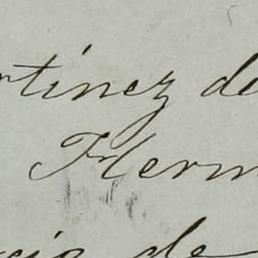 rtinez de
Herm
cio de